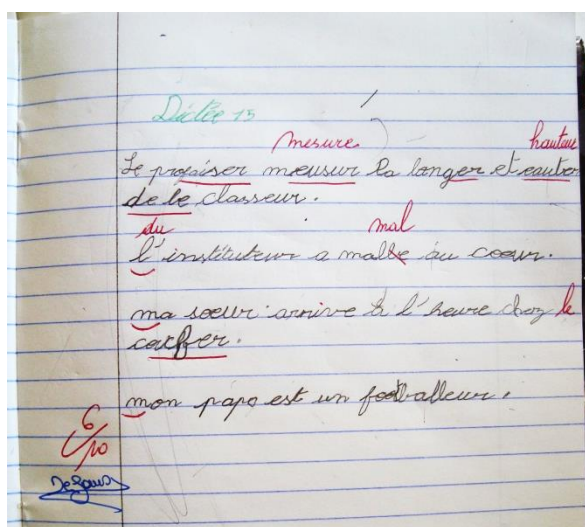 Dictée 15
mesure hauteur
Le professer meusur la longer et eauter
de le classeur.
du mal
l'instituteur a malle au coeur.
ma soeur arrive à l'heure chez le
coiffer.
mon papa est un footballeur.
6/10